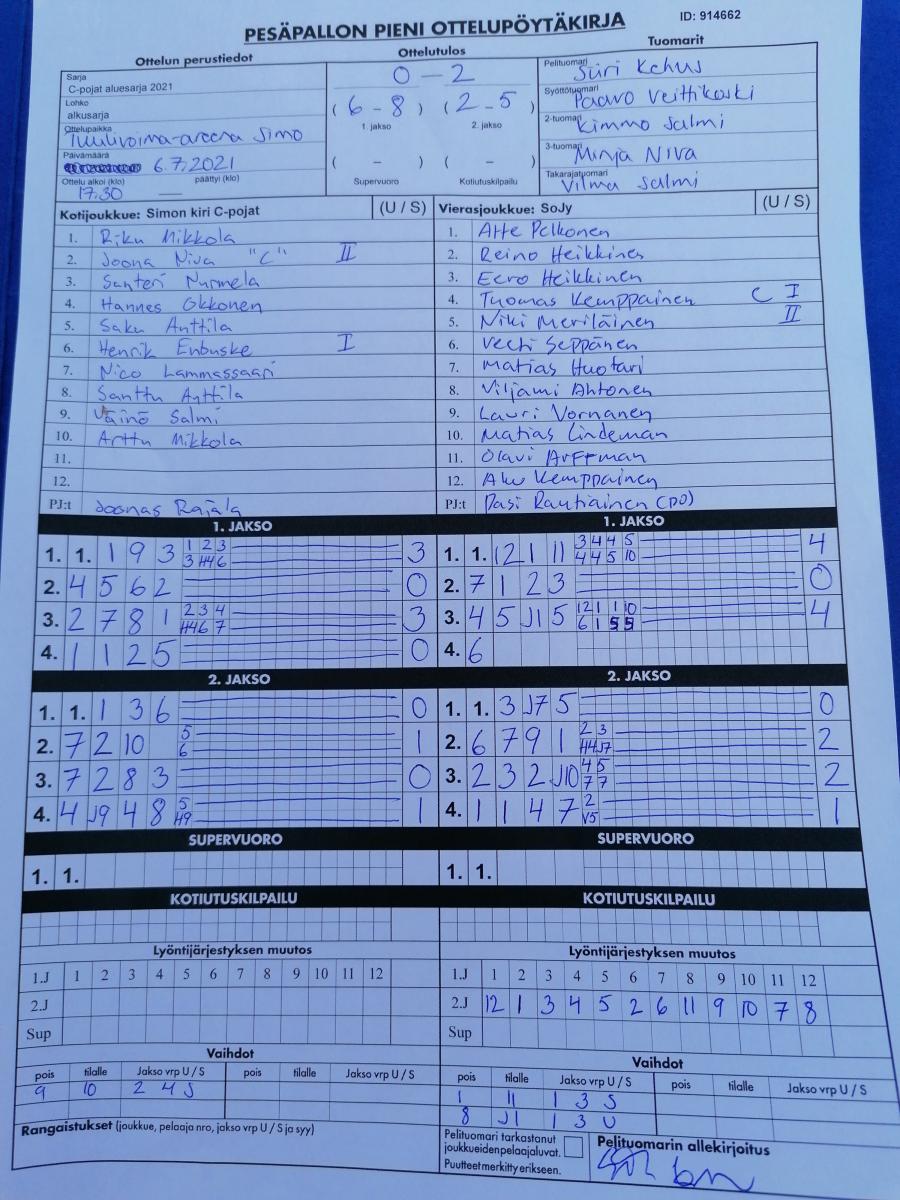 PESÄPALLON PIENI OTTELUPÖYTÄKIRJA
ID: 914662
Ottelun perustiedot
Ottelutulos
Tuomarit
Sarja
C-pojat aluesarja 2021
Lohko
alkusarja
Ottelupaikka
Tuulivoima-areena Simo
Päivämäärä
6.7.2021
Ottelu alkoi (klo) päättyi (klo)
17.30 —
0 - 2
(6 - 8) (2 - 5)
1. jakso 2. jakso
( - ) ( - )
Supervuoro Kotiutuskilpailu
Pelituomari
Siiri Kehus
Syöttötuomari
Paavo Veittikoski
2-tuomari
Kimmo Salmi
3-tuomari
Minja Niva
Takarajatuomari
Vilma Salmi
Kotijoukkue: Simon kiri C-pojat (U / S)
1. Riku Mikkola
2. Joona Niva "C" II
3. Santeri Nurmela
4. Hannes Okkonen
5. Saku Anttila
6. Henrik Enbuske I
7. Nico Lammassaari
8. Santtu Anttila
9. Väinö Salmi
10. Arttu Mikkola
11.
12.
PJ:t Joonas Rajala
Vierasjoukkue: SoJy (U / S)
1. Atte Pelkonen
2. Reino Heikkinen
3. Eero Heikkinen
4. Tuomas Kemppainen C I
5. Niki Meriläinen II
6. Veeti Seppänen
7. Matias Huotari
8. Viljami Ahtonen
9. Lauri Vornanen
10. Matias Lindeman
11. Olavi Arffman
12. Aku Kemppainen
PJ:t Pasi Rautiainen (PO)
1. JAKSO
1. 1. 1 9 3 1 2 3 3
3 H4 6
2. 4 5 6 2 0
3. 2 7 8 1 2 3 4 3
H4 6 7
4. 1 1 2 5 0
1. JAKSO
1. 1. 12 1 11 3 4 4 5 4
4 4 5 10
2. 7 1 2 3 0
3. 4 5 J1 5 12 1 1 10 4
6 1 5 5
4. 6
2. JAKSO
1. 1. 1 3 6 0
2. 7 2 10 5 1
6
3. 7 2 8 3 0
4. 4 J9 4 8 5 1
H9
2. JAKSO
1. 1. 3 J7 5 0
2. 6 7 9 1 2 3 2
H4 J7
3. 2 3 2 J10 4 5 2
7 7
4. 1 1 4 7 2 1
V5
SUPERVUORO
1. 1.
SUPERVUORO
1. 1.
KOTIUTUSKILPAILU
KOTIUTUSKILPAILU
Lyöntijärjestyksen muutos
1.J 1 2 3 4 5 6 7 8 9 10 11 12
2.J
Sup
Lyöntijärjestyksen muutos
1.J 1 2 3 4 5 6 7 8 9 10 11 12
2.J 12 1 3 4 5 2 6 11 9 10 7 8
Sup
Vaihdot
pois tilalle Jakso vrp U / S pois tilalle Jakso vrp U / S
9 10 2 4 S
Vaihdot
pois tilalle Jakso vrp U / S pois tilalle Jakso vrp U / S
1 11 1 3 S
8 J1 1 3 U
Rangaistukset (joukkue, pelaaja nro, jakso vrp U / S ja syy)
Pelituomari tarkastanut
joukkueiden pelaajaluvat.
Puutteet merkitty erikseen.
Pelituomarin allekirjoitus